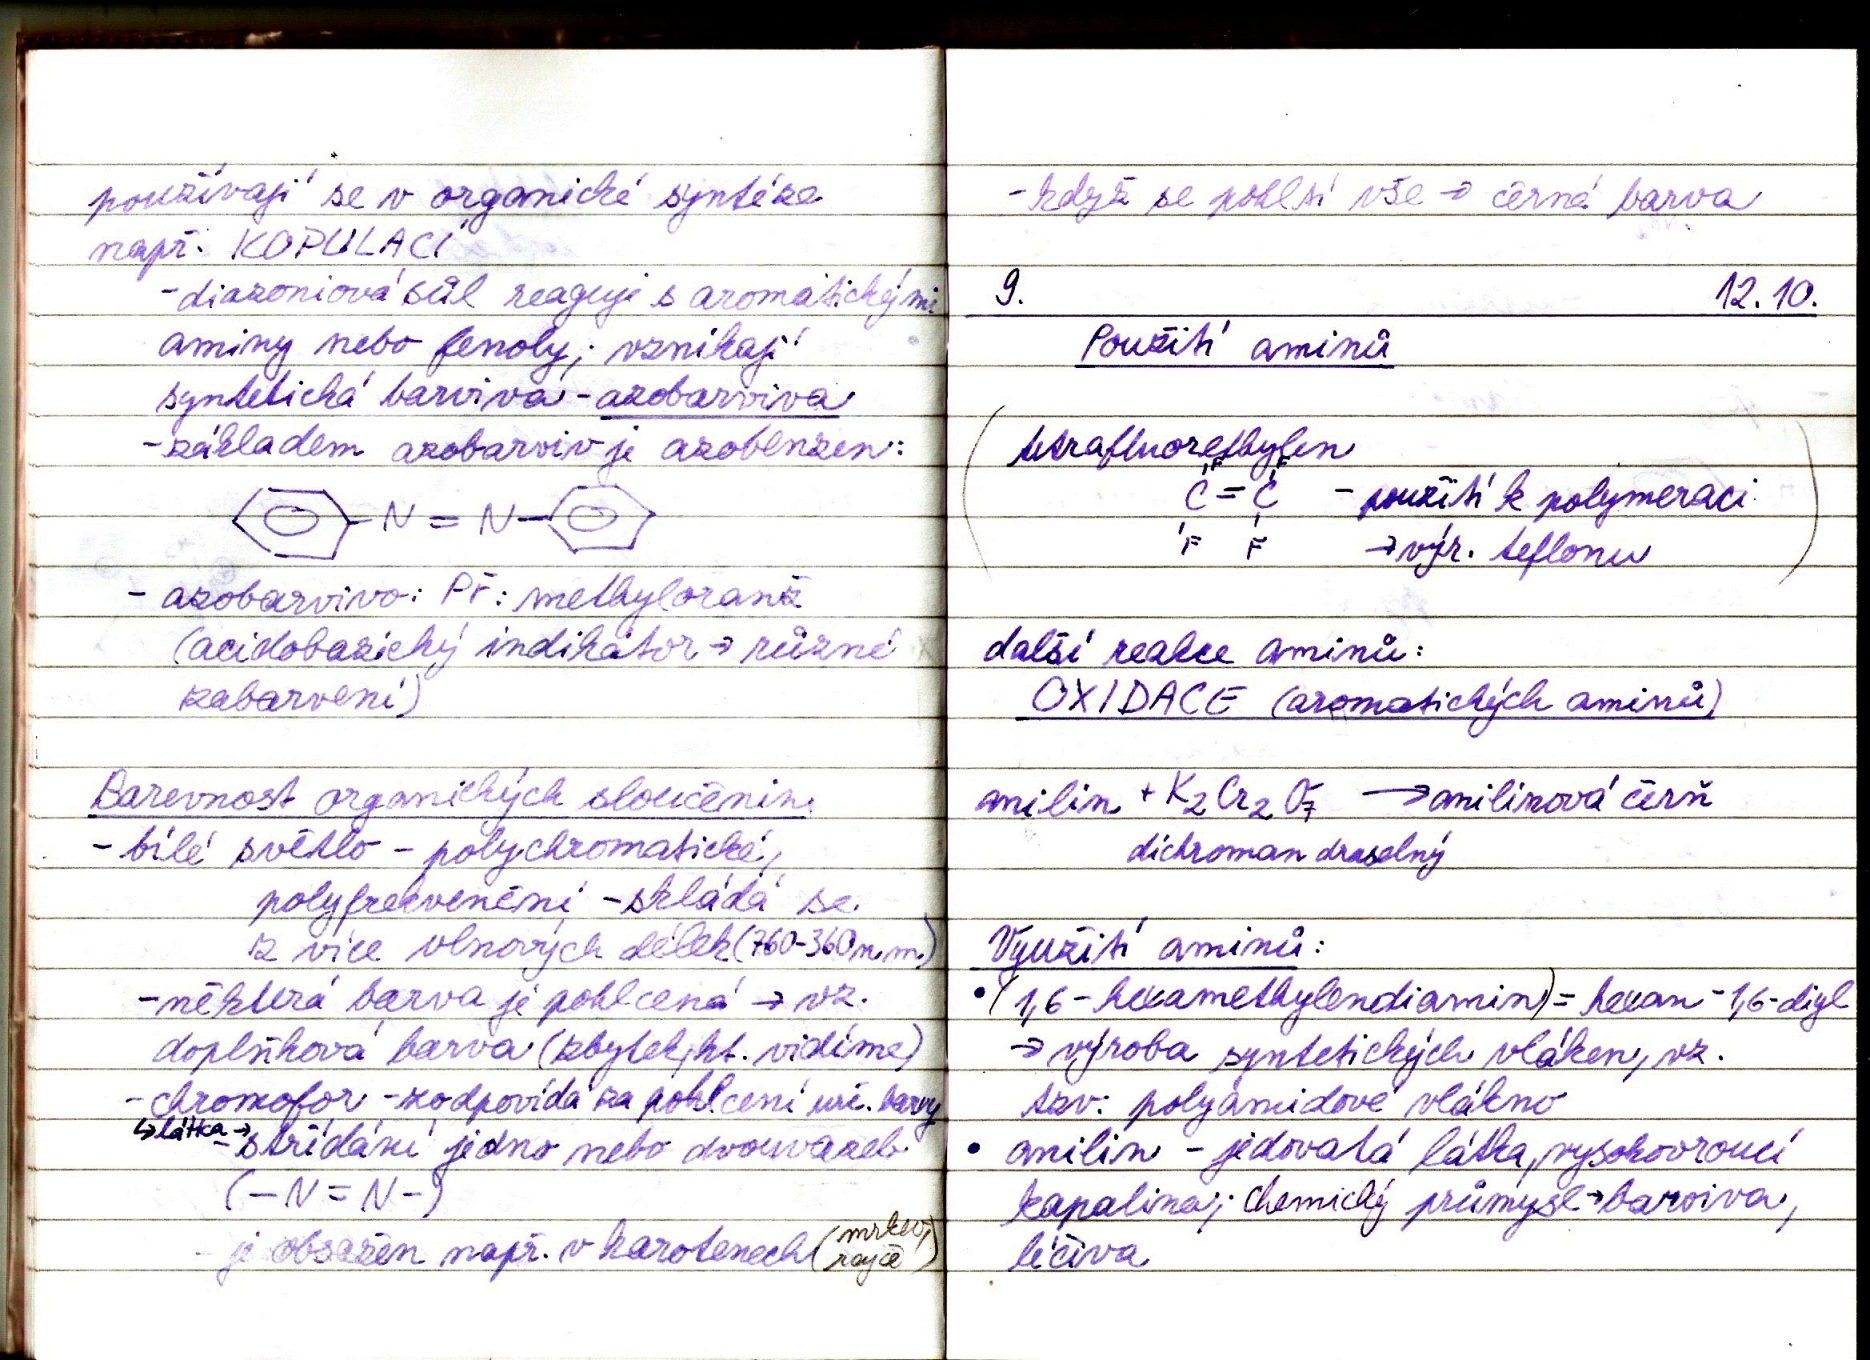 používají se v organické syntéze
např. KOPULACÍ
-diazoniová sůl reaguje s aromatickými
aminy nebo fenoly; vznikají
syntetická barviva - azobarviva
-základem azobarviv je azobenzen:
-N=N-
- azobarvivo: Př: methyloranž
(acidobazický indikátor → různé
zabarvení)
Barevnost organických sloučenin:
- bílé světlo - polychromatické,
polyfrekvenční - skládá se
z více vlnových délek (760-360n.m.)
-některá barva je pohlcená → vz.
doplňková barva (zbytek, kt. vidíme)
-chromofor - zodpovídá za pohlcení urč. barvy
↳látka→
- střídání jedno nebo dvouvazeb
(-N=N-)
- je obsažen např. v karotenech (mrkev,
rajče)
-když se pohltí vše → černá barva
9. 12.10.
Použití aminů
(tetrafluorethylen
F F
C=C - použití k polymeraci
F F → výr. teflonu)
další reakce aminů:
OXIDACE (aromatických aminů)
anilin + K2Cr2O7 → anilinová čerň
dichroman draselný
Využití aminů:
• (1,6-hexamethylendiamin) = hexan-1,6-diyl
→ výroba syntetických vláken, vz.
tzv: polyamidové vlákno
• anilin - jedovatá látka, vysokovroucí
kapalina; chemický průmysl→barviva,
léčiva